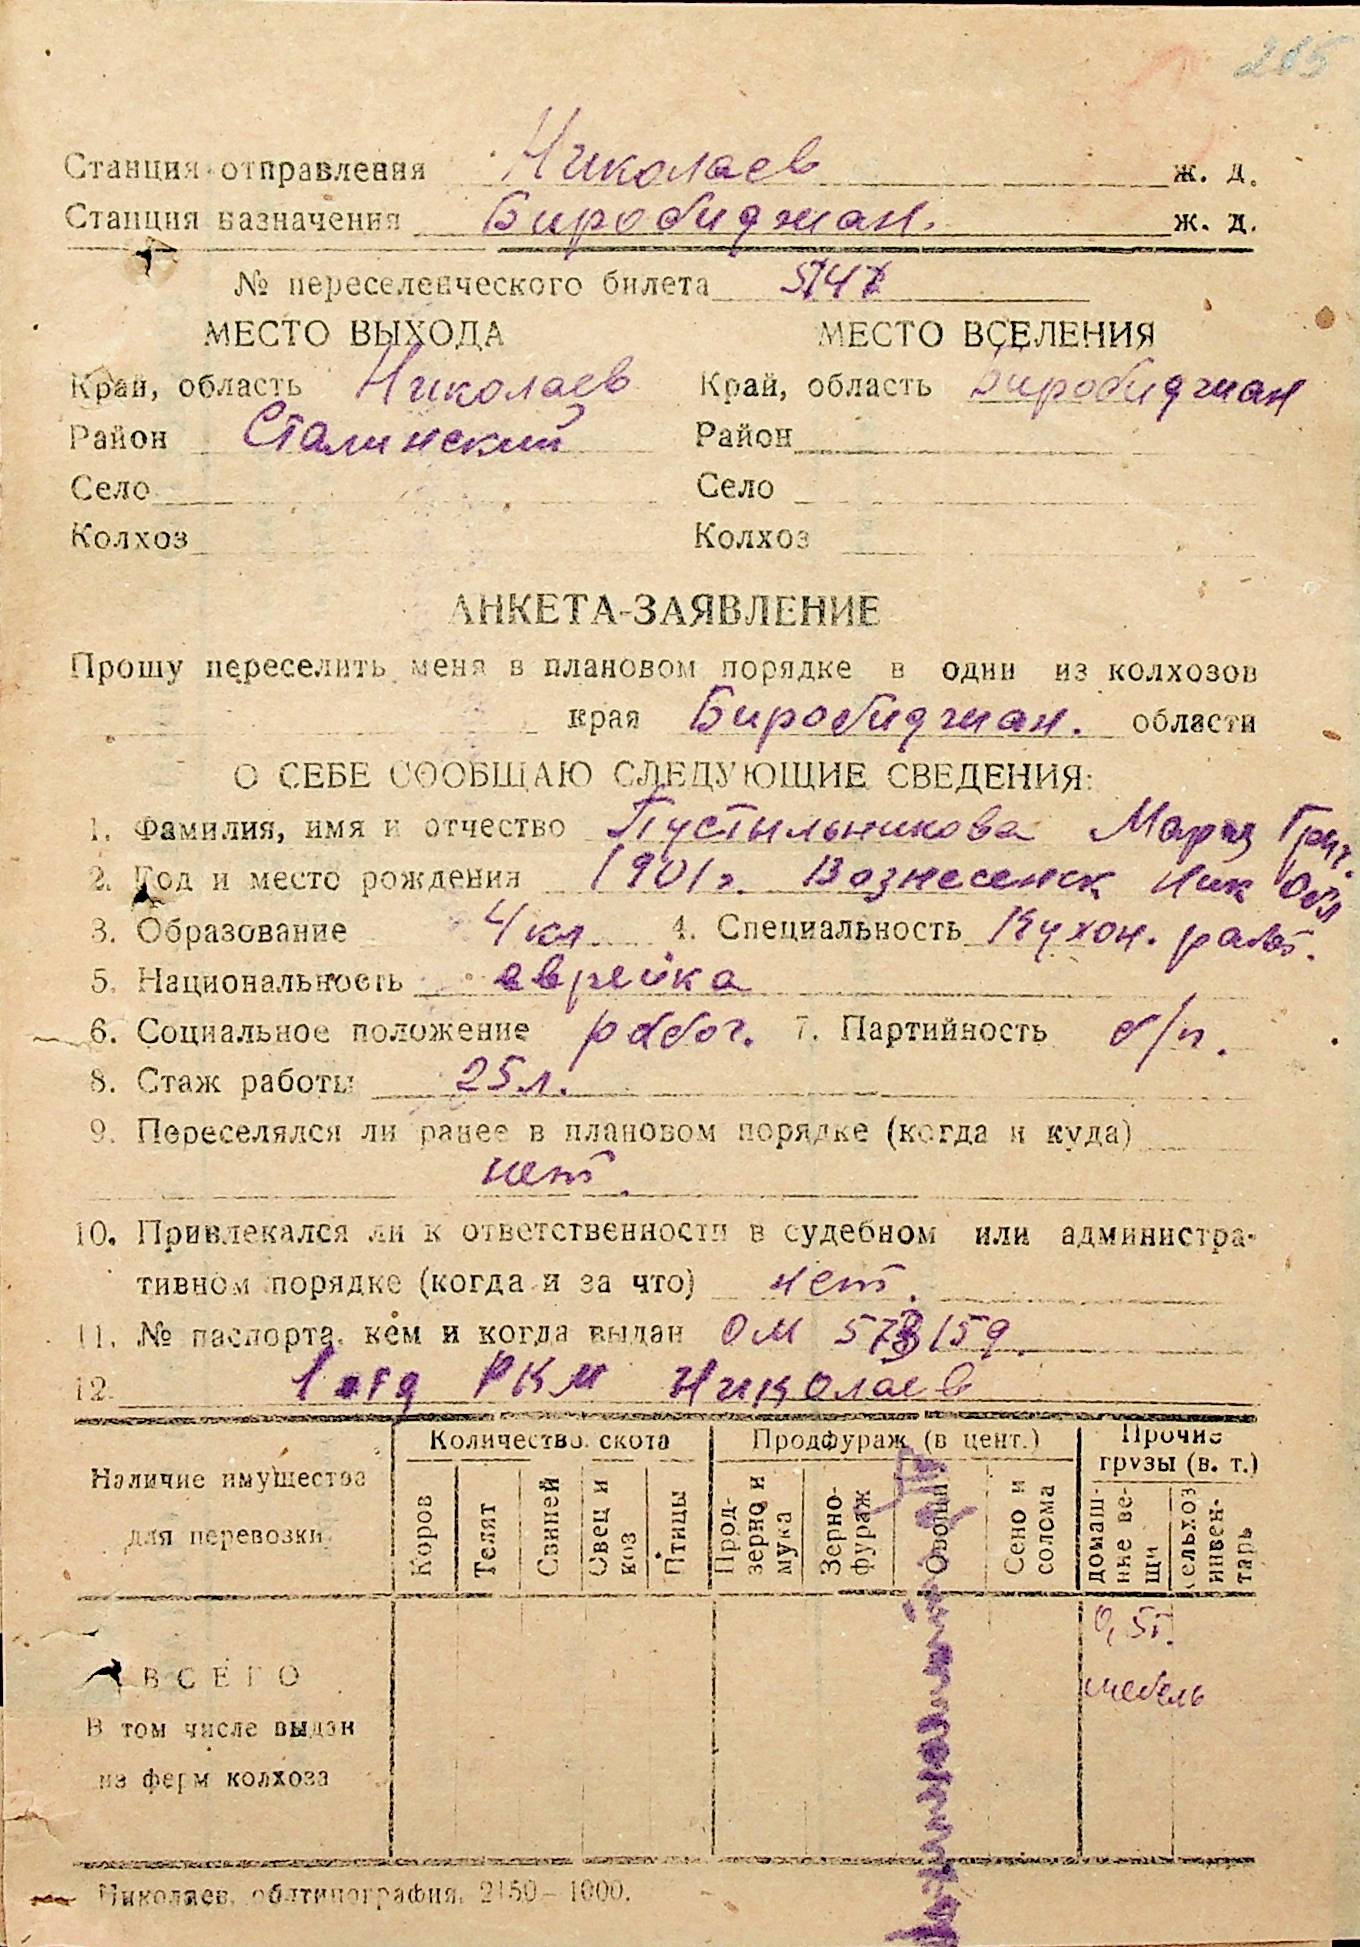 265
Станция отправления Николаев ж. д.
Станция назначения Биробиджан. ж. д.
№ переселенческого билета
МЕСТО ВЫХОДА МЕСТО ВСЕЛЕНИЯ
Край, область Николаев Край, область Биробиджан
Район Сталинский Район
Село Село
Колхоз Колхоз
АНКЕТА-ЗАЯВЛЕНИЕ
Прошу переселить меня в плановом порядке в один из колхозов
края Биробиджан. области
О СЕБЕ СООБЩАЮ СЛЕДУЮЩИЕ СВЕДЕНИЯ:
1. Фамилия, имя и отчество Пустыльникова Мария Григ.
2. Год и место рождения 1901 г. Вознесенск Ник Обл
3. Образование 4 кл 4. Специальность Кухон. работ.
5. Национальность еврейка
6. Социальное положение рабоч. 7. Партийность б/п.
8. Стаж работы 25 л.
9. Переселялся ли ранее в плановом порядке (когда и куда)
нет.
10. Привлекался ли к ответственности в судебном или администра-
тивном порядке (когда и за что) нет.
11. № паспорта, кем и когда выдан ОМ 573159.
12. 1 отд РКМ Николаев
Наличие имущества для перевозки
Количество скота
Продфураж (в цент.)
Прочие грузы (в. т.)
Коров
Телят
Свиней
Овец и коз
Птицы
Прод-зерно и мука
Зерно-фураж
Овощи
Сено и солома
домаш-ние ве-щи
сельхоз инвен-тарь
ВСЕГО 0,5 т.
мебель
В том числе выдан
из ферм колхоза
Николаев, облтипография, 2150—1000.